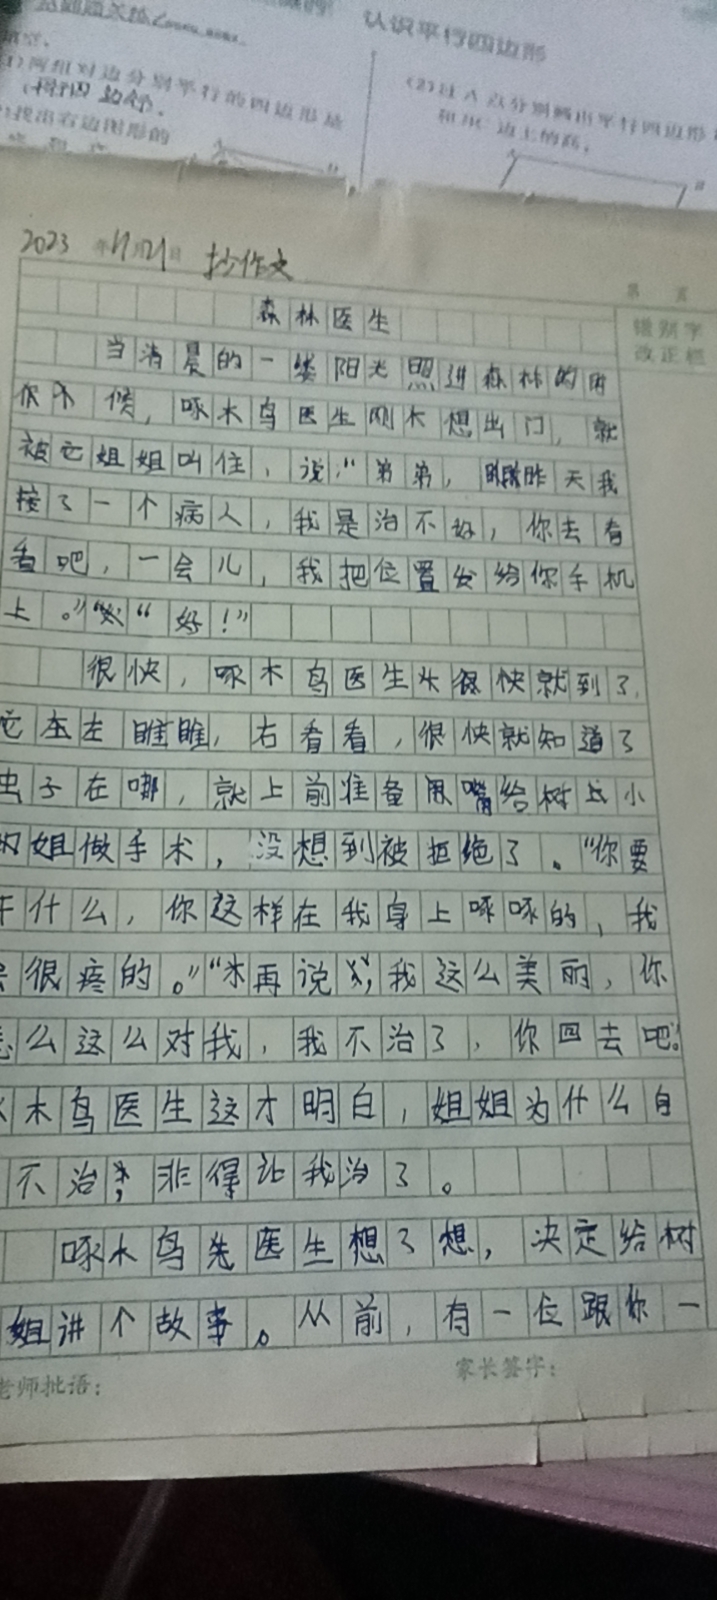 认识平行四边形
(1)两组对边分别平行的四边形是
(2)过A点分别画出平行四边形
找出右边图形的
和 边上的高。
2023年11月21日 抄作文
第 页
错别字
改正栏
森林医生
当清晨的一缕阳光照进森林的时
候,啄木鸟医生刚 想出门,就
被它姐姐叫住,说:“弟弟, 昨天我
接了一个病人,我是治不好,你去看
看吧,一会儿,我把位置发给你手机
上。” “好!”
很快,啄木鸟医生 很快就到了,
它 左 睢睢,右看看,很快就知道了
虫子在哪,就上前准备用嘴给树 小
的姐做手术,没想到被拒绝了。“你要
干什么,你这样在我身上啄啄的,我
会很疼的。”“ 再说 ,我这么美丽,你
怎么这么对我,我不治了,你回去吧。
木鸟医生这才明白,姐姐为什么自
不治,非得让我治了。
啄木鸟先医生想了想,决定给树
姐讲个故事。从前,有一位跟你一
老师批语:
家长签字: